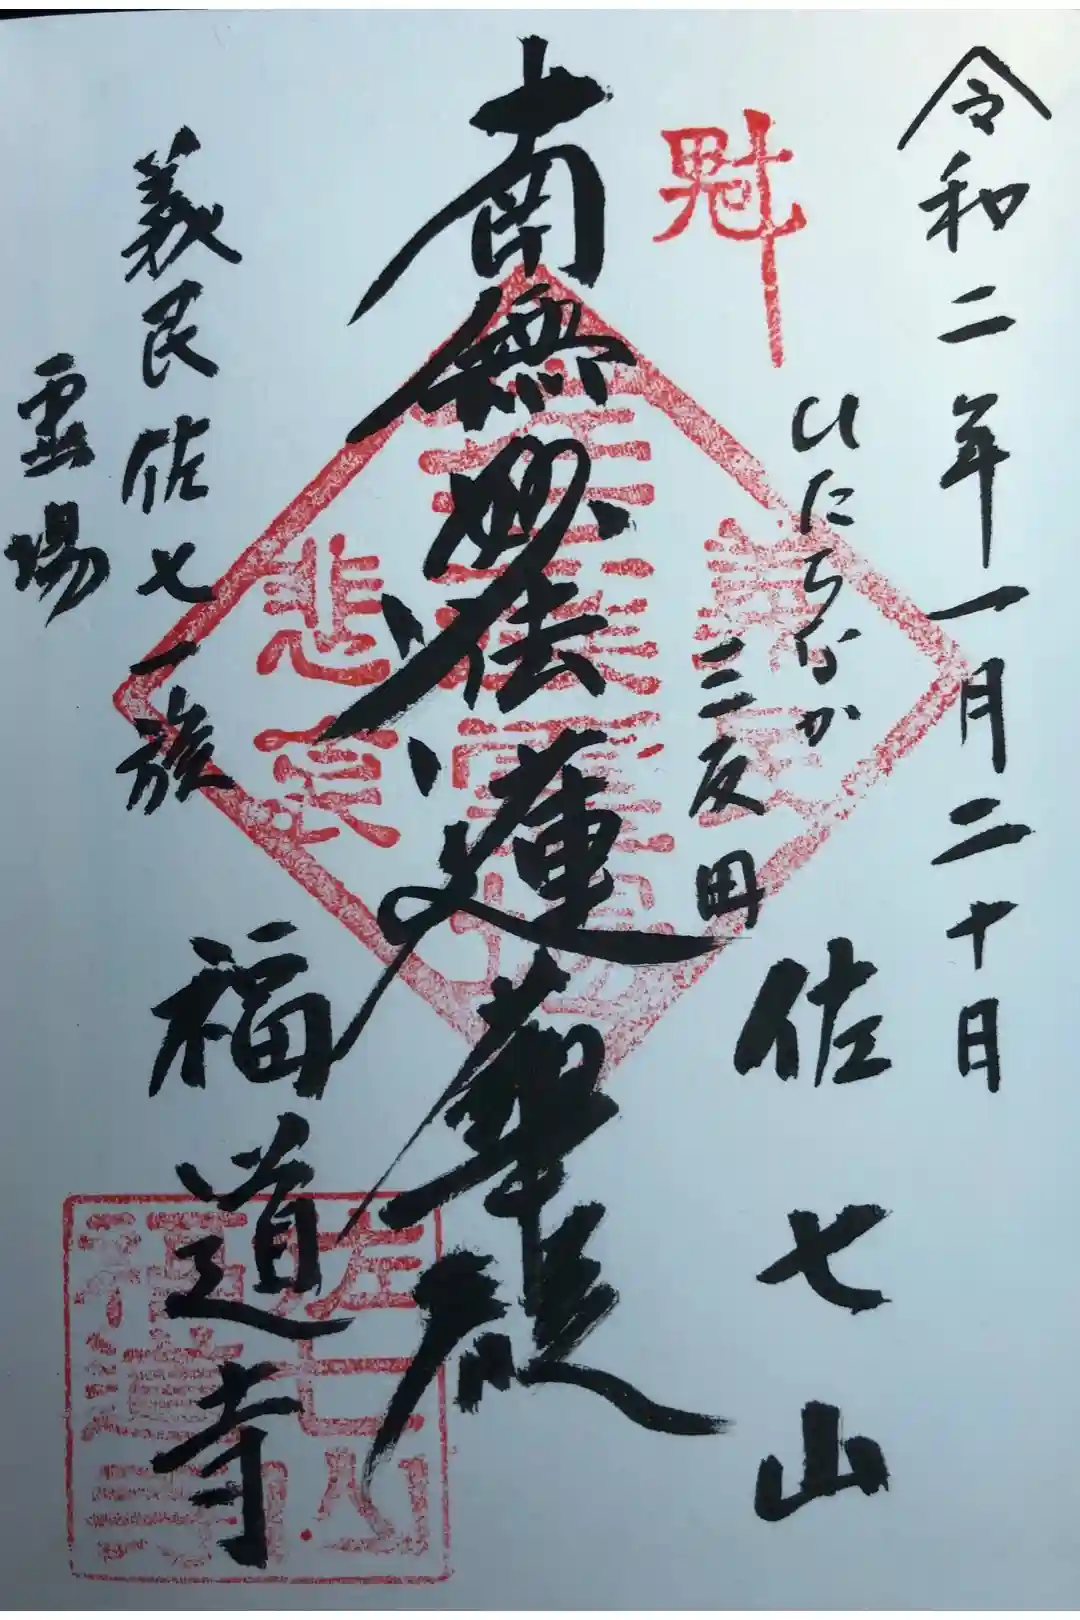 令和二年一月二十日
魁
ひたちなか
三反田
佐七山
南無妙法蓮華経
義民佐七一族
霊場
福道寺